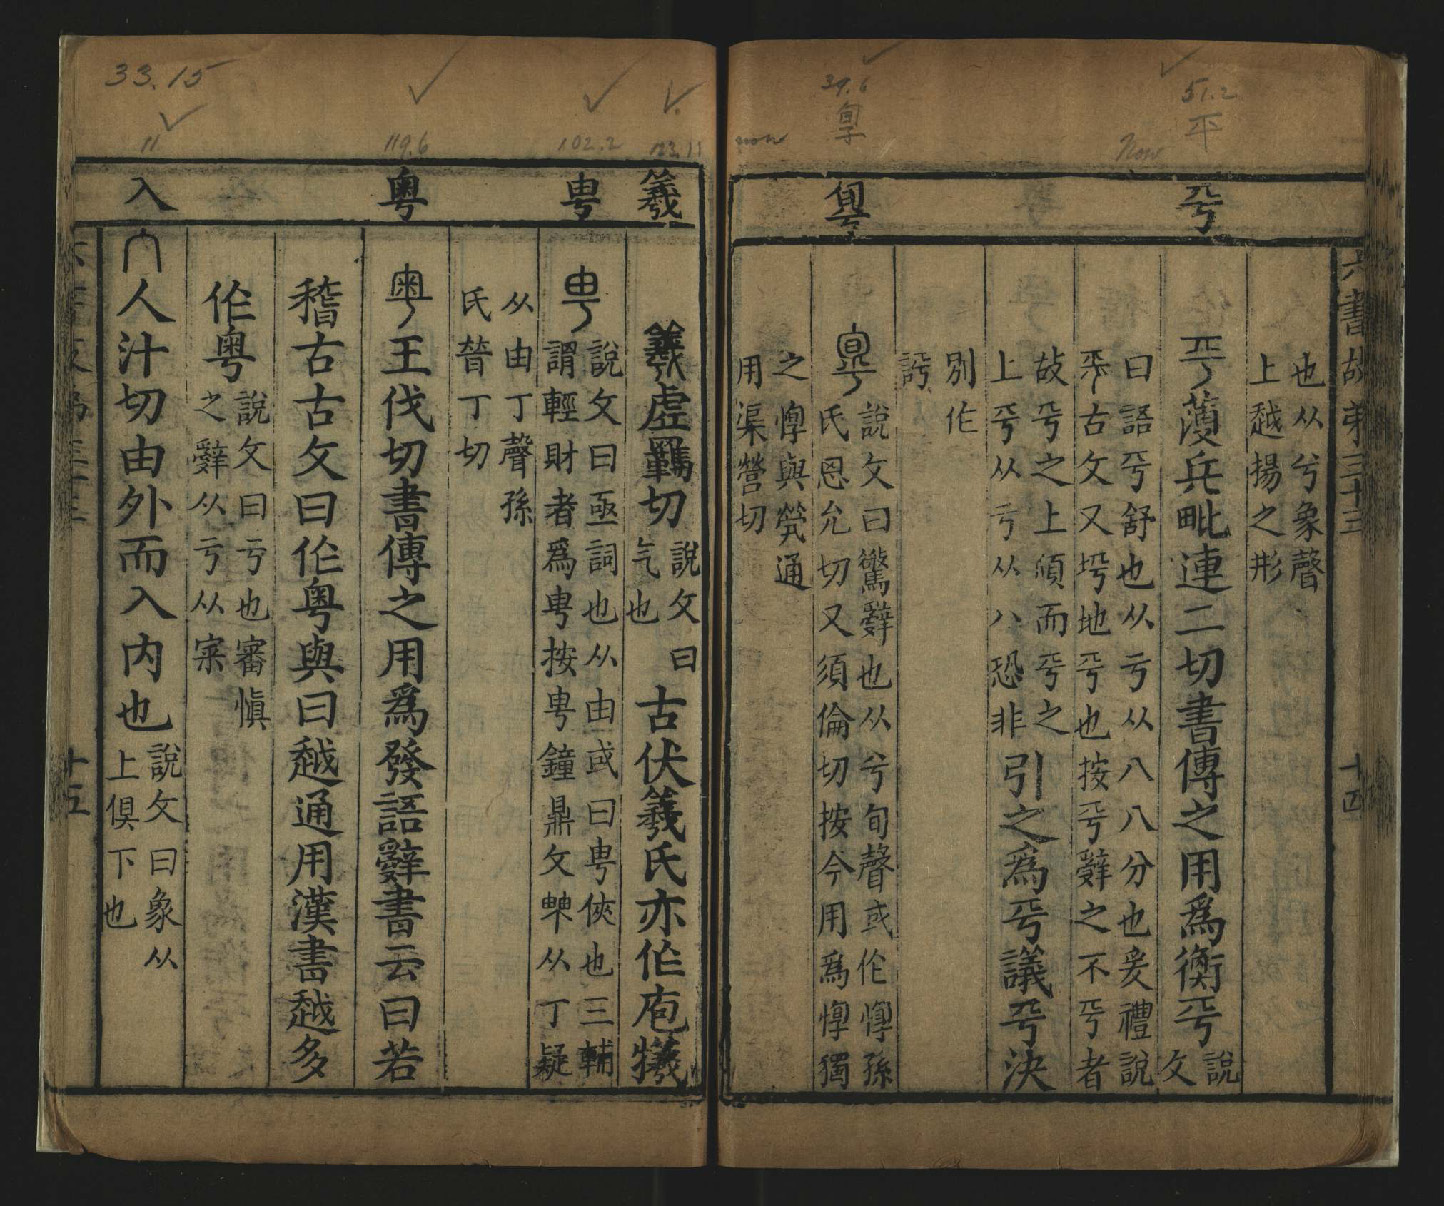 六書故弟三十三
十四
也从兮象聲
上越揚之形
平
𠀤蒲兵毗連二切書傳之用爲衡平說文
曰語平舒也从亏从八八分也爰禮說
古文又坪地平也按平辭之不平者
故平之上傾而平之
上平从亏从八恐非引之爲平議平決
別作
訡
說文曰驚辭也从兮旬聲或作惸孫
氏思允切又須倫切按今用爲惸獨
之惸與煢通
用渠營切
羲
羲虛羈切說文曰
气也古伏羲氏亦作庖犧
甹
甹說文曰亟詞也从由或曰甹俠也三輔
謂輕財者爲甹按甹鐘鼎文从丁疑
从由丁聲孫
氏普丁切
粵
粵王伐切書傳之用爲發語辭書云曰若
稽古古文曰作粵與曰越通用漢書越多
作粵說文曰亏也審愼
之辭从亏从宷
入
入人汁切由外而入內也說文曰象从
上俱下也
十五
33.15
11
119.6
102.2
39.6
51.2
平
now
now